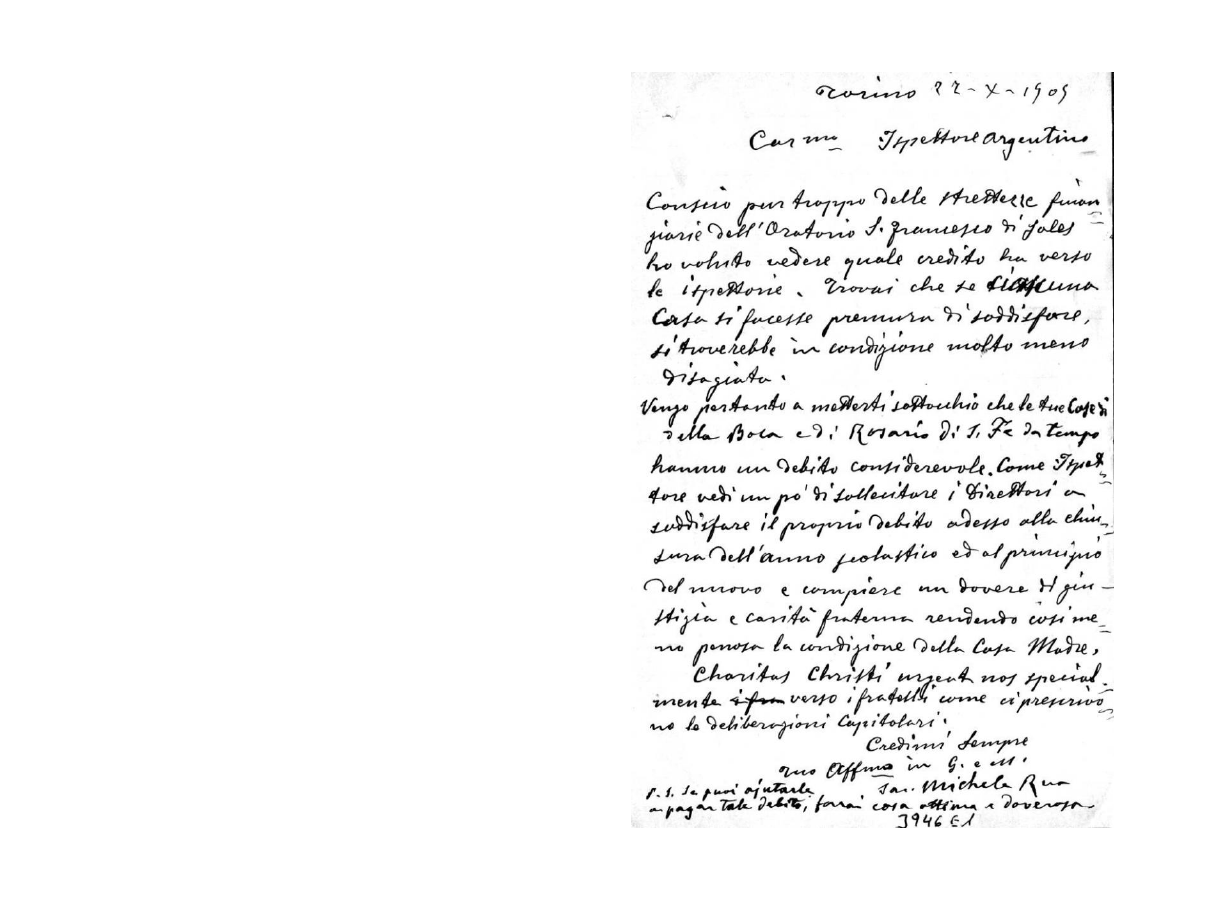 Torino 22-X-1905
Car mo Ispettore Argentino
Conscio pur troppo delle strettezze finan
ziarie dell'Oratorio S. Francesco di Sales
ho voluto vedere quale credito ha verso
le ispettorie. Trovai che se ciascuna
Casa si facesse premura di soddisfare,
si troverebbe in condizione molto meno
disagiata.
Vengo pertanto a metterti sottocchio che le tue Case di
della Boca e di Rosario di S. Fe da tempo
hanno un debito considerevole. Come Ispet-
tore vedi un po' di sollecitare i Direttori a
soddisfare il proprio debito adesso alla chiu-
sura dell'anno scolastico ed al principio
del nuovo e compiere un dovere di giu-
stizia e carità fraterna rendendo così me-
no penosa la condizione della Casa Madre.
Charitas Christi urget nos special-
mente verso i fratelli come ci prescrivo-
no le deliberazioni Capitolari.
Credimi sempre
Tuo Affmo in G. e M.
Sac. Michele Rua
P.S. Se puoi ajutarle
a pagar tale debito, farai cosa ottima e doverosa
3946 E1